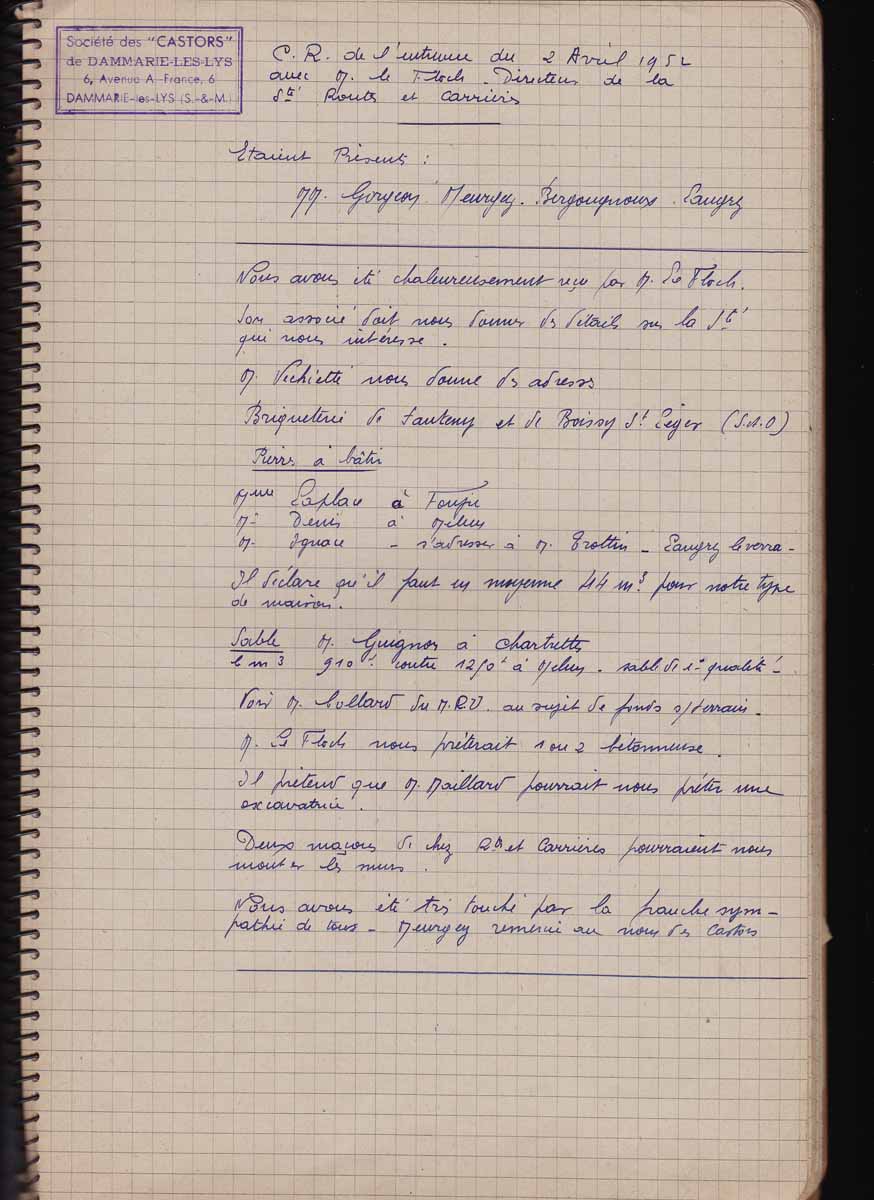 Société des "CASTORS"
de DAMMARIE-LES-LYS
6, Avenue A-France, 6
DAMMARIE-les-LYS (S.-&-M.)
C. R. de l'entrevue du 2 Avril 1952
avec M. le Floch. Directeur de la
Sté Routes et Carrières
Etaient Présents :
MM. Gorgeon Meurgey. Bergougnoux. Laugry
Nous avons été chaleureusement reçu par M. Le Floch.
Son associé doit nous donner des détails sur la Sté
qui nous intéresse.
M. Vechietti nous donne des adresses
Briqueterie de et de Boissy St Léger (S.&.O)
Pierres à bâtir
Mme Laplace à
M. Denis à Melun
M. Ignace - s'adresser à M. Trottin - Laugry le verra -
Il déclare qu'il faut en moyenne 44 m3 pour notre type
de maison.
Sable M. Guignon à Chartrettes
le m3 910f contre 1250f à Melun - sable de 1e qualité -
Voir M. Collard du M.R.U. au sujet de fonds s/terrain.
M. Le Floch nous prêterait 1 ou 2 bétonneuse.
Il prétend que M. Maillard pourrait nous prêter une
excavatrice.
Deux maçons de chez Rtes et Carrières pourraient nous
monter les murs.
Nous avons été très touché par la franche sym-
pathie de tous - Meurgey remercie au nom des Castors